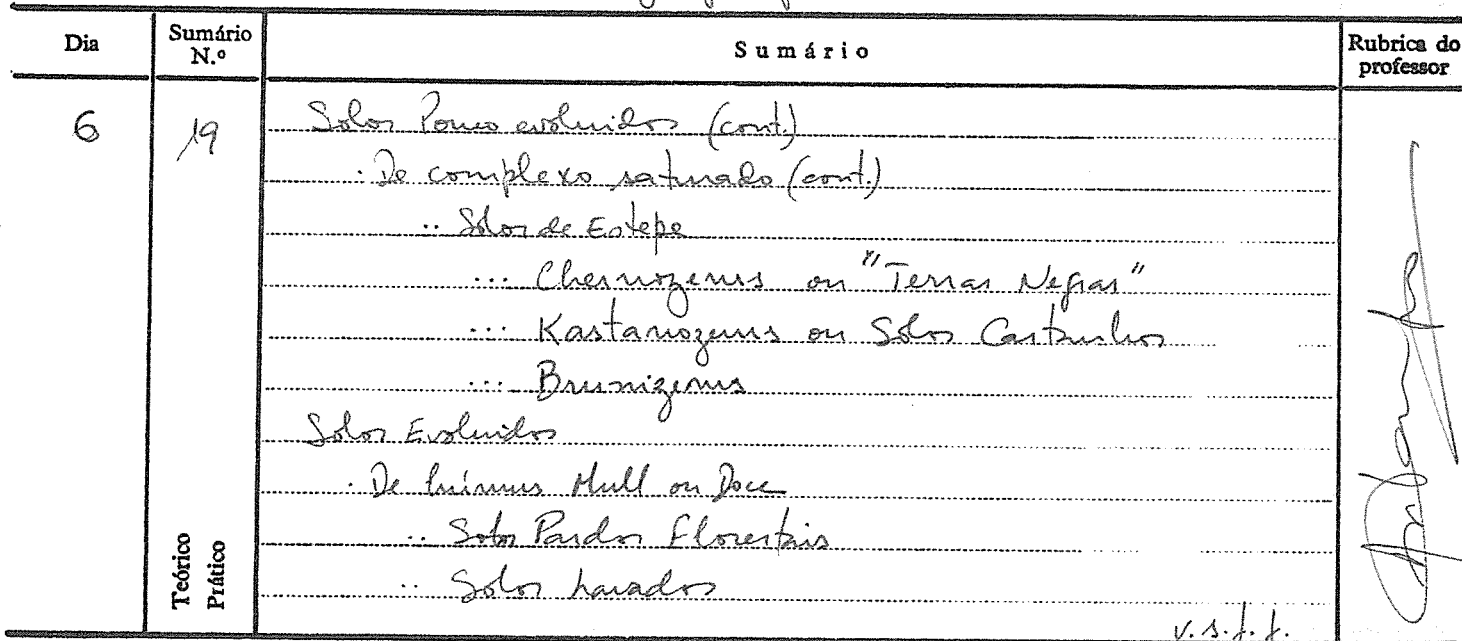 Dia Sumário N.º Sumário Rubrica do professor
6 19 Solos Pouco evoluidos (cont.)
. De complexo saturado (cont.)
.. Solos de Estepe
... Chernozems ou "Terras Negras"
... Kastanozems ou Solos Castanhos
... Brunizems
Solos Evoluidos
. De húmus Mull ou Doce
.. Solos Pardos Florestais
.. Solos Lavados
Teórico
Prático
v.s.f.f.